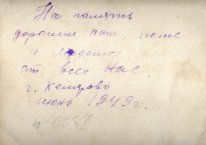 На память
дорогим пап, маме
и
от всех Нас.
г. Кемерово
июнь 1949 г.